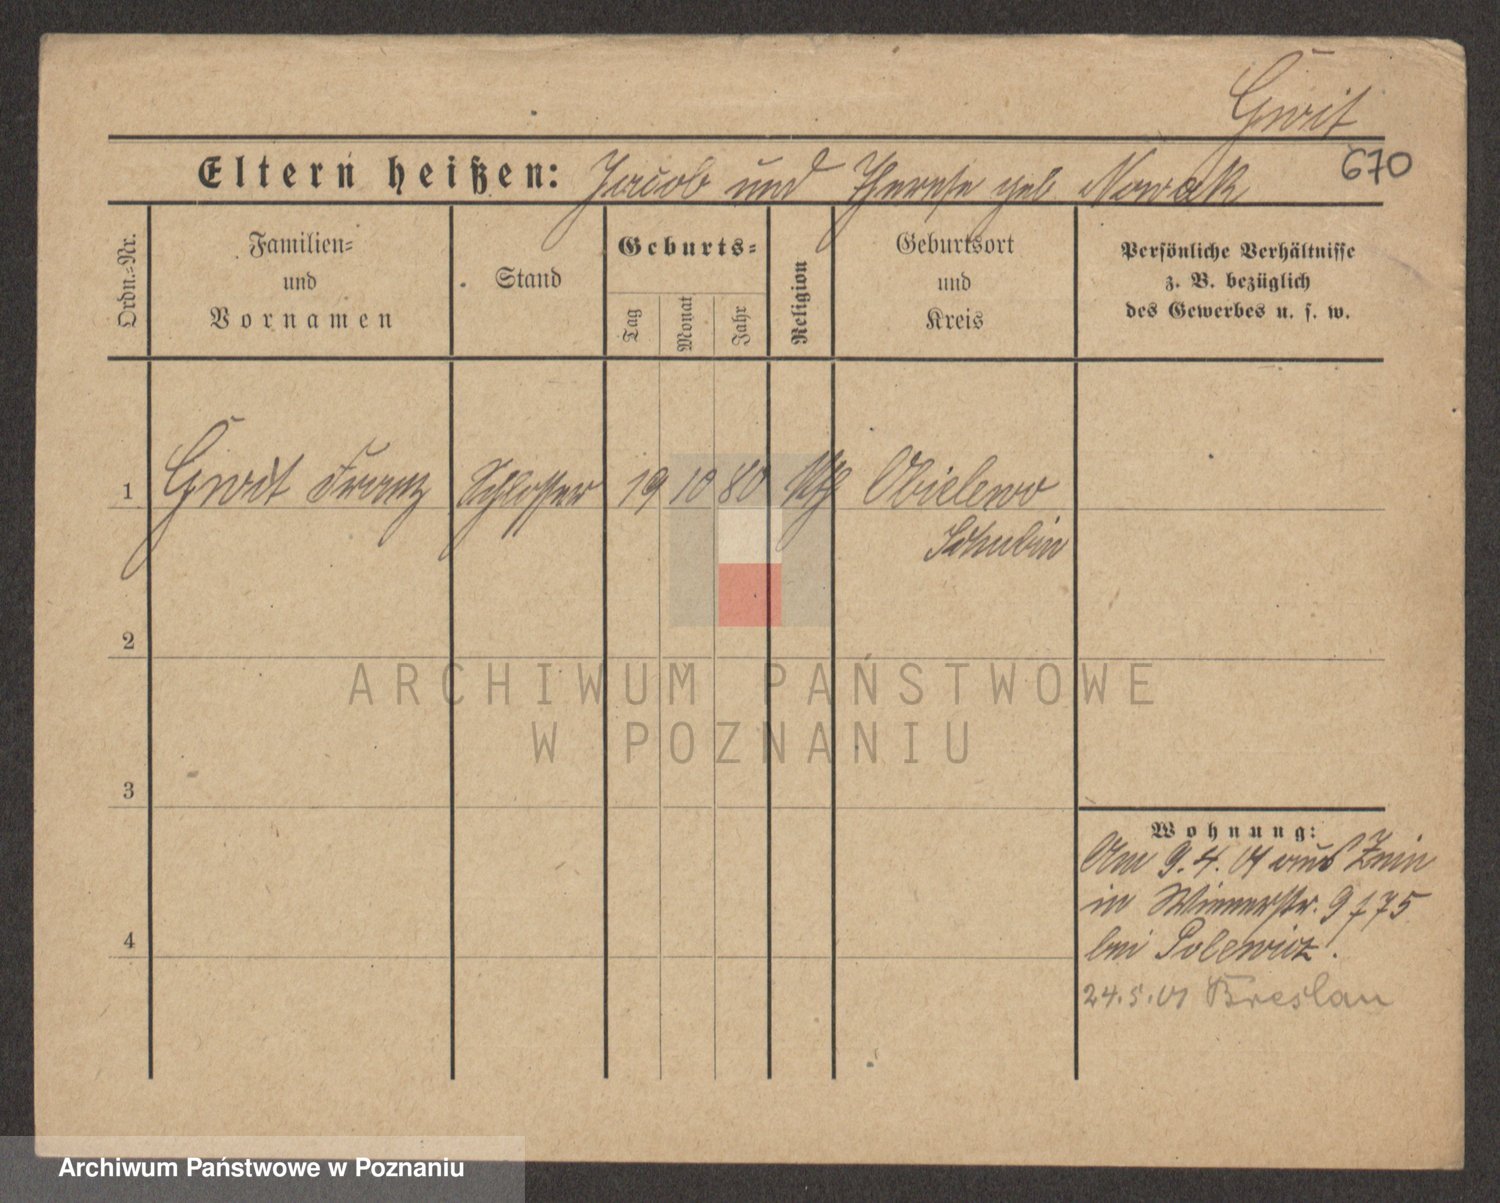 Gwit
670
Eltern heißen: Jacob und Therese geb. Nowak
Ordn.=Nr.
Familien=
und
Vornamen
Stand
Geburts=
Tag
Monat
Jahr
Religion
Geburtsort
und
Kreis
Persönliche Verhältnisse
z. B. bezüglich
des Gewerbes u. s. w.
1 Gwit Franz Schlosser 19 10 80 kth Obielewo
Schubin
2
ARCHIWUM PAŃSTWOWE
W POZNANIU
3
Wohnung:
Am 9.4.01 aus Znin
in Wienerstr. 9 f 75
4
bei Polewicz.
24.5.01 Breslau
Archiwum Państwowe w Poznaniu